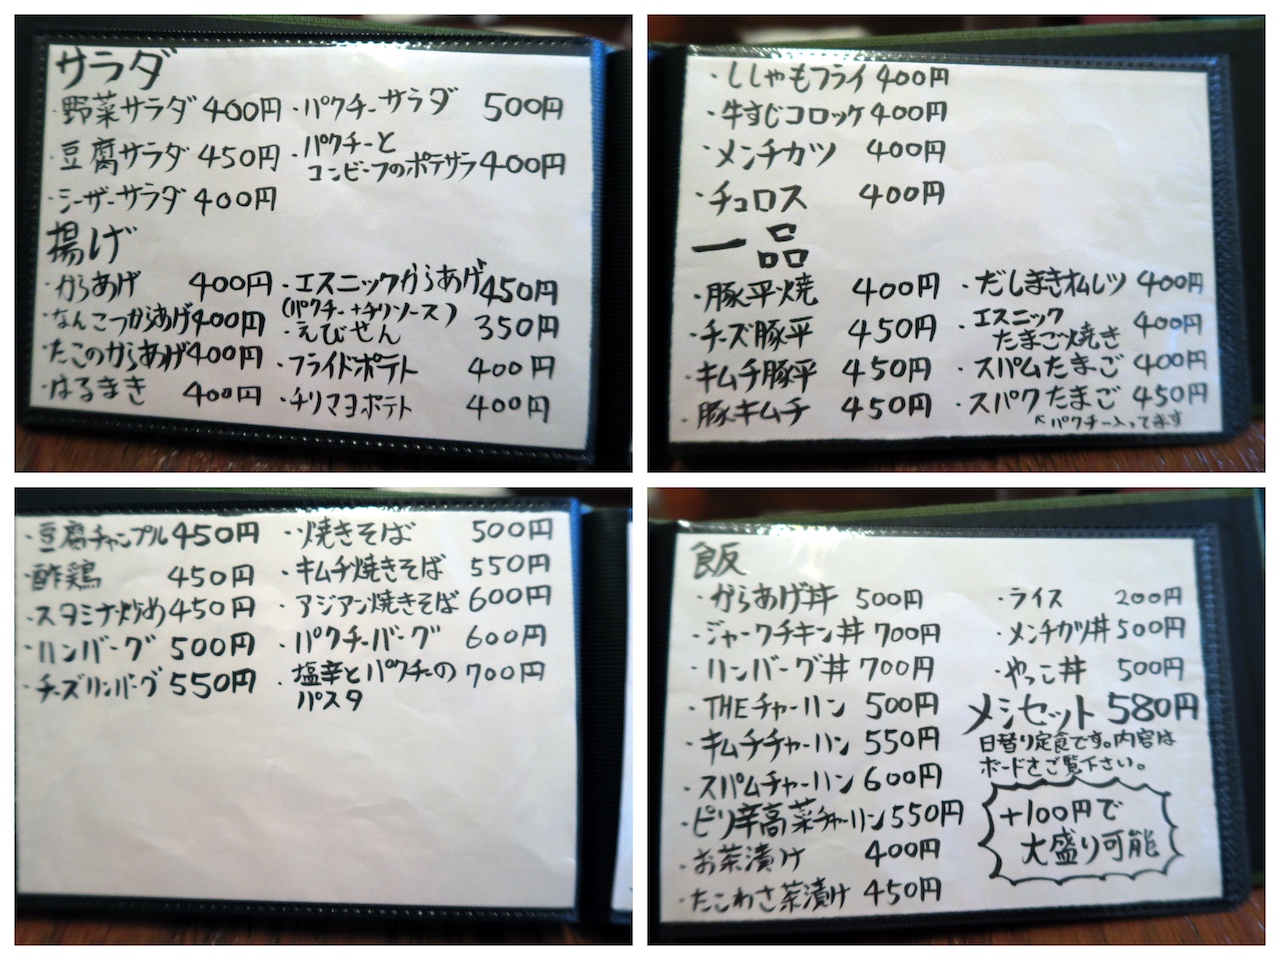 サラダ
・野菜サラダ 400円
・豆腐サラダ 450円
・シーザーサラダ 400円
・パクチーサラダ 500円
・パクチーと
コンビーフのポテサラ 400円
揚げ
・からあげ 400円
・なんこつからあげ 400円
・たこのからあげ 400円
・はるまき 400円
・エスニックからあげ 450円
(パクチー+チリソース)
・えびせん 350円
・フライドポテト 400円
・チリマヨポテト 400円
・ししゃもフライ 400円
・牛すじコロッケ 400円
・メンチカツ 400円
・チュロス 400円
一品
・豚平焼 400円
・チーズ豚平 450円
・キムチ豚平 450円
・豚キムチ 450円
・だしまきオムレツ 400円
・エスニック
たまご焼き 400円
・スパムたまご 400円
・スパクたまご 450円
↖パクチー入ってます
・豆腐チャンプル 450円
・酢鶏 450円
・スタミナ炒め 450円
・ハンバーグ 500円
・チーズハンバーグ 550円
・焼きそば 500円
・キムチ焼きそば 550円
・アジアン焼きそば 600円
・パクチーバーグ 600円
・塩辛とパクチーの 700円
パスタ
飯
・からあげ丼 500円
・ジャークチキン丼 700円
・ハンバーグ丼 700円
・THEチャーハン 500円
・キムチチャーハン 550円
・スパムチャーハン 600円
・ピリ辛高菜チャーハン 550円
・お茶漬け 400円
・たこわさ茶漬け 450円
・ライス 200円
・メンチカツ丼 500円
・やっこ丼 500円
メシセット 580円
日替り定食です。内容は
ボードをご覧下さい。
+100円で
大盛り可能